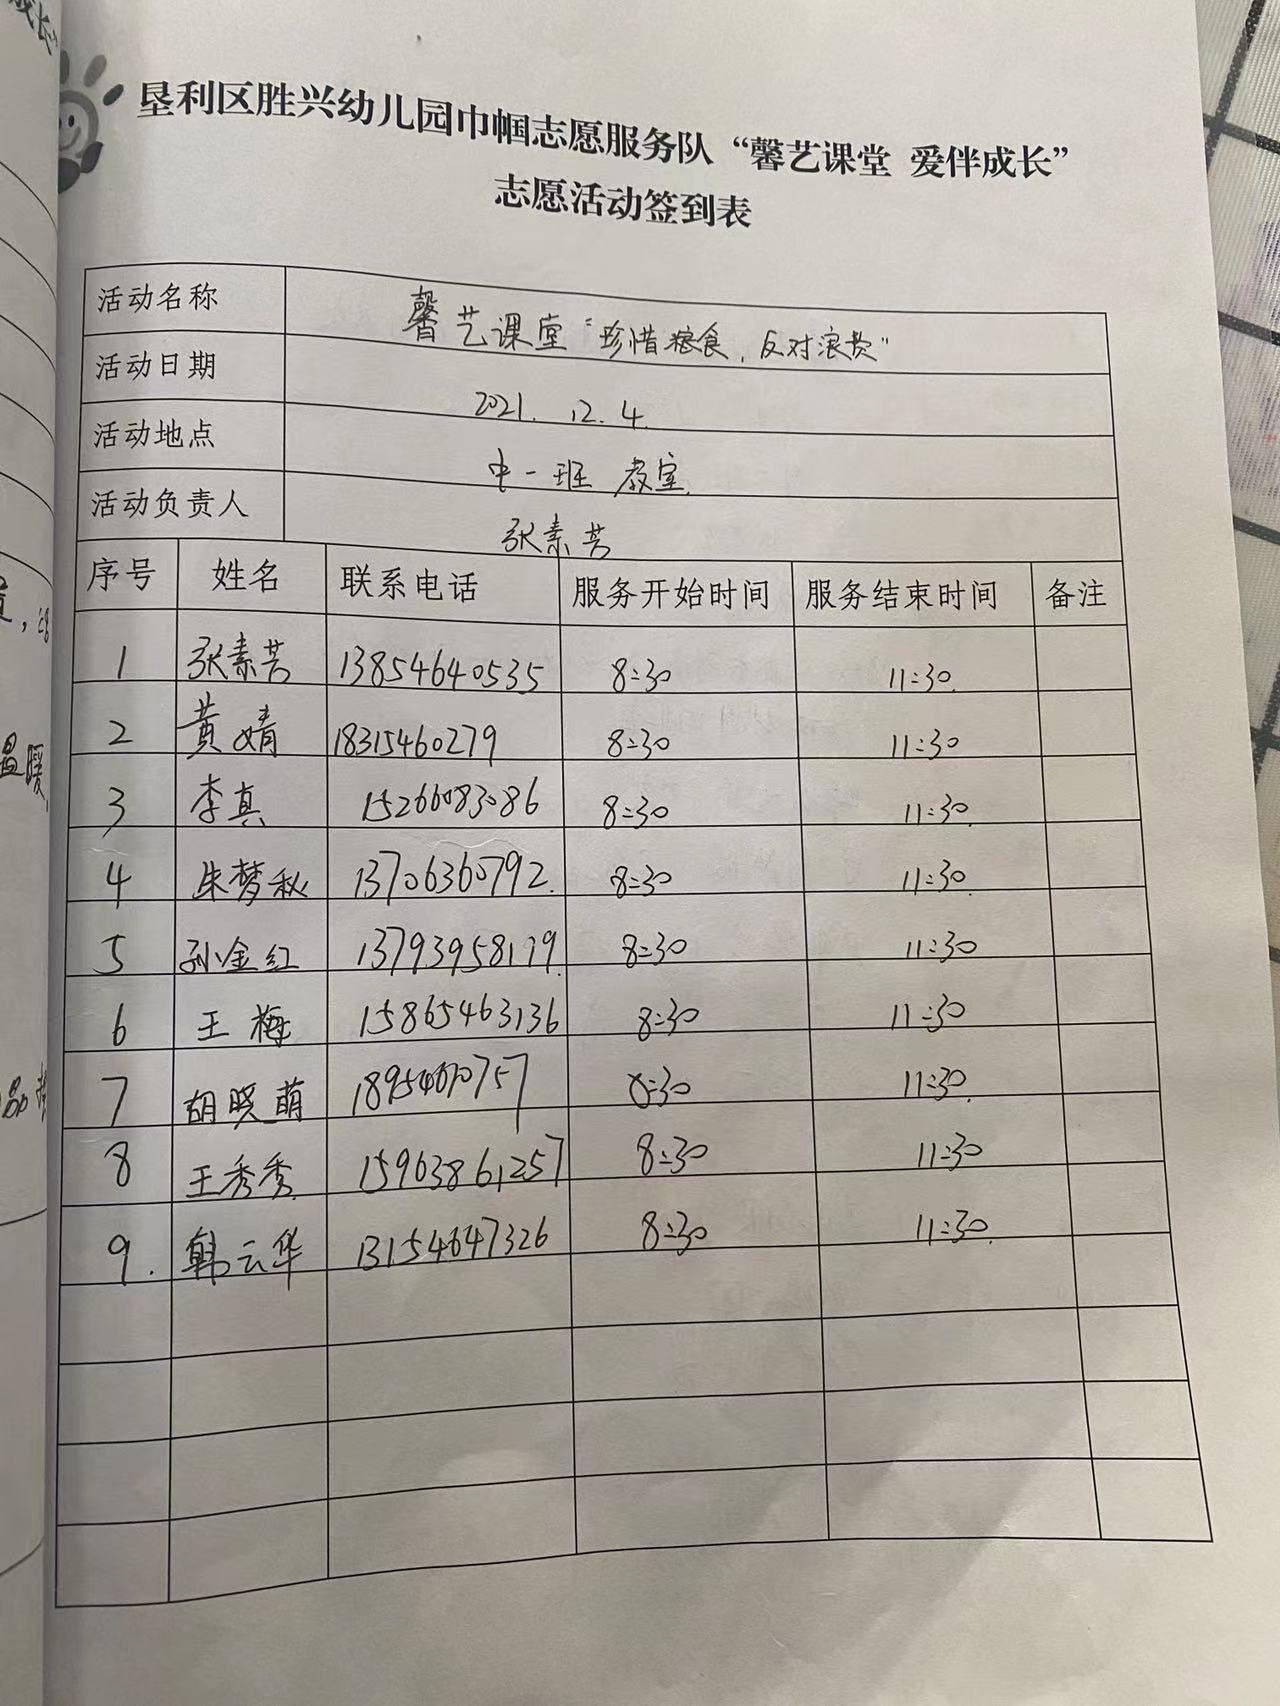 垦利区胜兴幼儿园巾帼志愿服务队“馨艺课堂 爱伴成长”
志愿活动签到表
活动名称 馨艺课堂“珍惜粮食，反对浪费”
活动日期 2021.12.4.
活动地点 中一班 教室.
活动负责人 张素芳
序号 姓名 联系电话 服务开始时间 服务结束时间 备注
1 张素芳 13854640535 8:30 11:30.
2 黄婧 18315460279 8:30 11:30
3 李真 15266083086 8:30 11:30.
4 朱梦秋 13706360792. 8:30 11:30.
5 孙金红 13793958179. 8:30 11:30
6 王梅 15865463136 8:30 11:30
7 胡晓萌 8:30 11:30.
8 王秀秀 15963861257 8:30 11:30
9. 韩云华 13154647326 8:30 11:30.
温暖